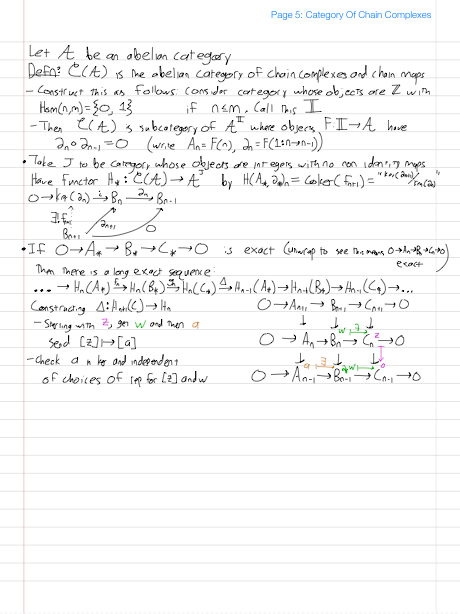 Page 5: Category Of Chain Complexes
Let A be an abelian category
Defn: C(A) is the abelian category of chain complexes and chain maps
- Construct this as follows: consider category whose objects are ℤ with
Hom(n,m) = {0, 1} if n≤m. Call this 𝕀
- Then C(A) is subcategory of A^𝕀 where objects F: 𝕀→A have
∂n∘∂n-1 = 0 (write An = F(n), ∂n = F(1:n→n-1))
• Take J to be category whose objects are integers with no non identity maps
Have functor H*: C(A) → A^J by H(A*, ∂*)n = Coker(fn+1) = "ker(∂n)/im(∂n)"
0→ker(∂n) →i Bn →∂n Bn-1
∃! f ∂n+1 0
Bn+1
• If 0→A*→B*→C*→0 is exact (unwrap to see this means 0→An→Bn→Cn→0)
exact
Then there is a long exact sequence:
... → Hn(A*) → Hn(B*) → Hn(C*) →Δ Hn-1(A*) → Hn-1(B*) → Hn-1(C*) → ...
Constructing Δ: Hn+1(C) → Hn
0 → An+1 → Bn+1 → Cn+1 → 0
- Starting with z, get w and then a
w ∃ z
Send [z] ↦ [a]
0 → An → Bn → Cn → 0
- Check a in ker and independent
a ∃ ∂w 0
of choices of rep for [z] and w
0 → An-1 → Bn-1 → Cn-1 → 0